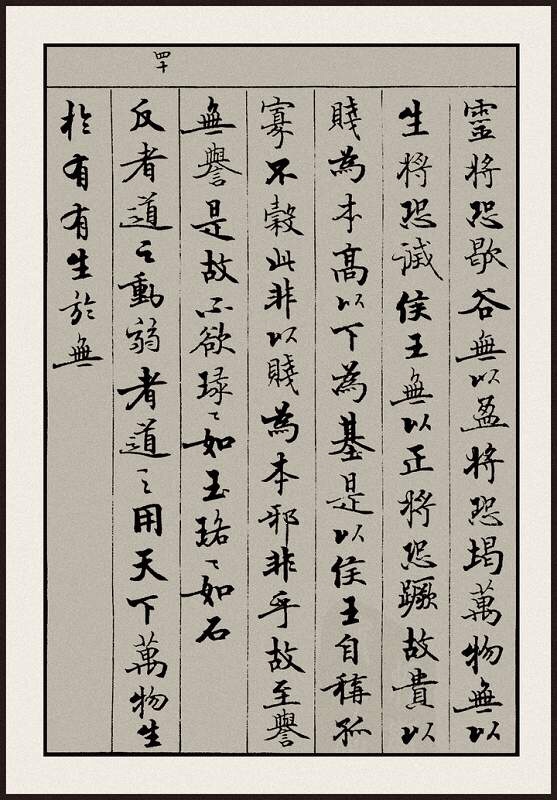 靈將恐歇谷無以盈將恐竭萬物無以
生將恐滅侯王無以正將恐蹶故貴以
賤為本高以下為基是以侯王自稱孤
寡不穀此非以賤為本邪非乎故至譽
無譽是故不欲琭々如玉珞々如石
四十
反者道之動弱者道之用天下萬物生
於有有生於無